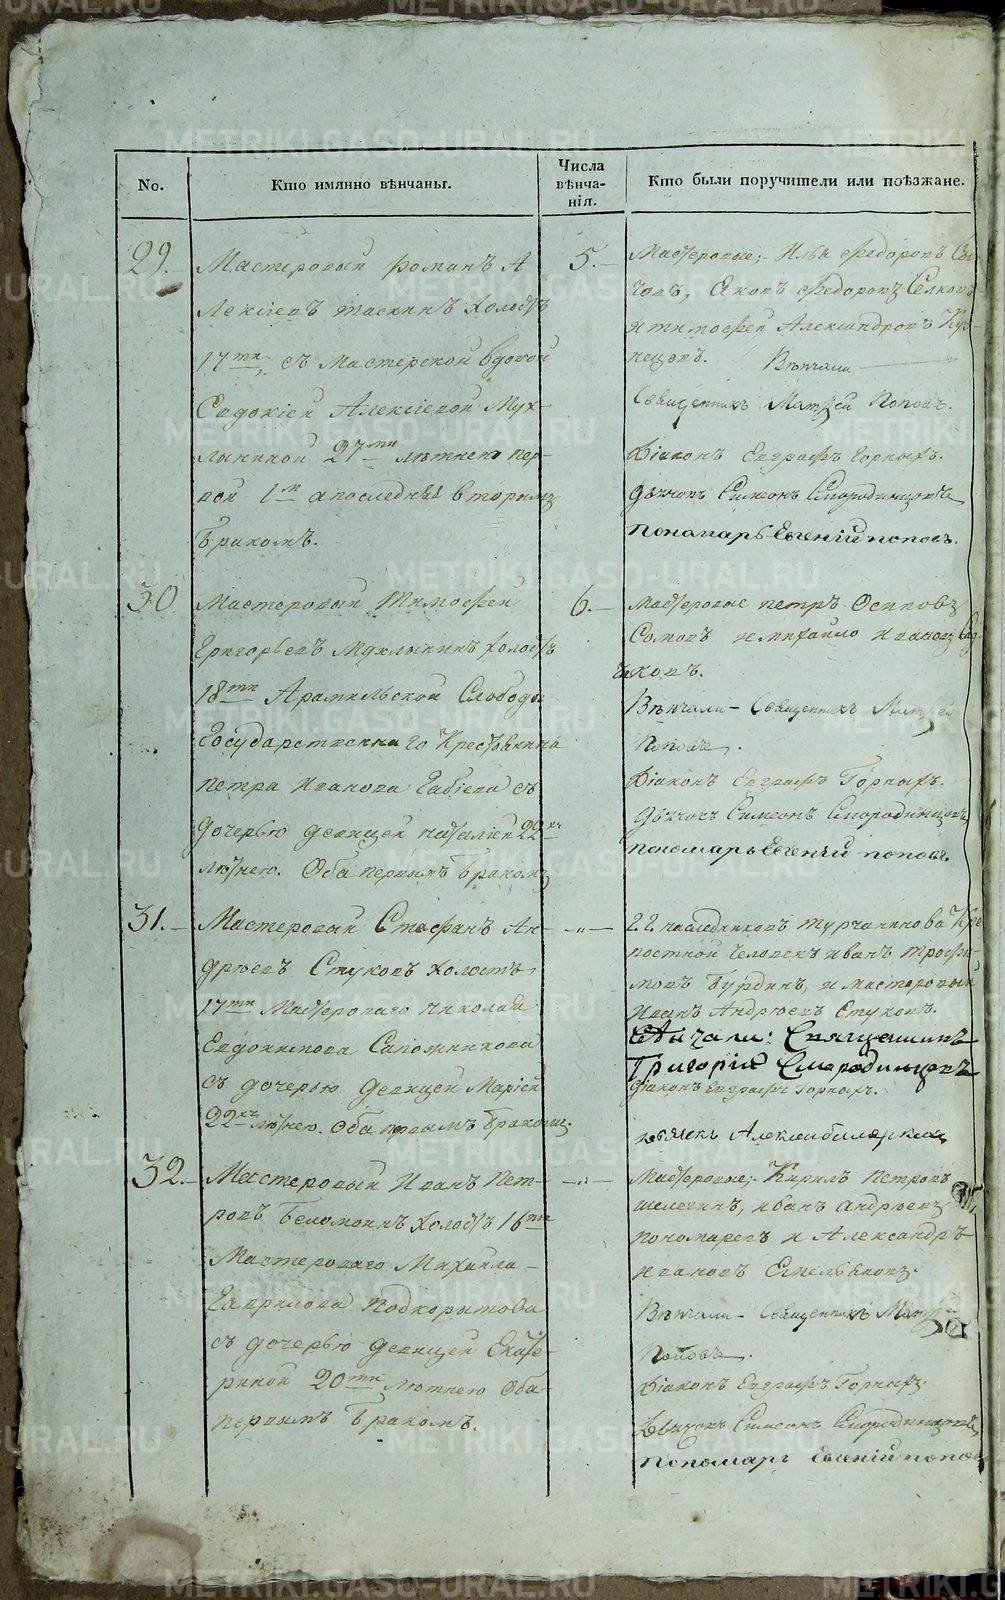 No.
Кто имянно вѣнчаны.
Числа
вѣнча-
нія.
Кто были поручители или поѣзжане.
29.
Мастеровый Романъ А
лексіевъ Таскинъ холостъ
17ти, съ мастерской вдовой
Евдокіей Алексіевой Мух-
лыниной 27ми лѣтнею пер-
вой 1м а последняя вторымъ
бракомъ.
5.
Мастеровые; Илья Федоровъ
Яковъ Федоровъ
и Тимофей Александровъ Куз-
нецовъ. Вѣнчали
Священникъ Матфей Поповъ.
Діаконъ Евграфъ Горныхъ.
Дьячокъ Симеонъ Смородинцовъ
Пономарь Евгеній Поповъ.
30
Мастеровый Тимофей
Григорьевъ Мухлынинъ холостъ
18ти Арамильской Слободы
Государственнаго Крестьянина
Петра Иванова Бабіева съ
дочерью девицей Наталіей 22хъ
лѣтнею. Оба первымъ бракомъ
6.
Мастеровые Петръ Осиповъ
Сомовъ и Михайло Ивановъ
Вѣнчали Священникъ Матфей
Поповъ.
Діаконъ Евграфъ Горныхъ.
Дьячокъ Симеонъ Смородинцовъ
Пономарь Евгеній Поповъ.
31.
Мастеровый Стефанъ Ан-
дрѣевъ Стуковъ холостъ
17ти Мастероваго Николая
Евдокимова Сапожникова
съ дочерью девицей Маріей
22хъ лѣтнею. Оба первымъ бракомъ.
„
22 наследниковъ Турчанинова Кре
постной человекъ Иванъ Трофи
мовъ Бурдинъ, и мастеровый
Иванъ Андрѣевъ Стуковъ.
Вѣнчали: Священникъ
Григорій Смородинцовъ
Діаконъ Евграфъ Горныхъ.
Дьячекъ Алексей
32.
Мастеровый Иванъ Пет-
ровъ Беломоинъ холостъ 16ти
Мастероваго Михаила
Гаврилова Подкорытова
съ дочерью девицей Екате-
риной 20ти лѣтнею Оба
первымъ бракомъ.
„
Мастеровые; Кирилъ Петровъ
Шелегинъ, Иванъ Андрѣевъ
Пономаревъ и Александръ
Ивановъ Емельяновъ.
Вѣнчали Священникъ Матфей
Поповъ.
Діаконъ Евграфъ Горныхъ.
Дьячокъ Симеонъ Смородинцовъ
Пономарь Евгеній Поповъ
METRIKI.GASO-URAL.RU